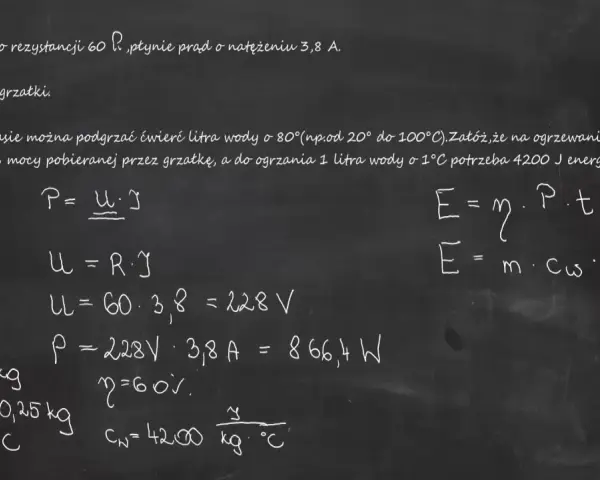 o rezystancji 60 Ω ,płynie prąd o natężeniu 3,8 A.
grzałki.
asie można podgrzać ćwierć litra wody o 80°(np.od 20° do 100°C).Załóż,że na ogrzewani
mocy pobieranej przez grzałkę, a do ogrzania 1 litra wody o 1°C potrzeba 4200 J energ
P = U · I
E = η · P · t
U = R · I
E = m · cw ·
U = 60 · 3,8 = 228 V
P = 228V · 3,8 A = 866,4 W
kg
η = 60%
0,25 kg
cw = 4200 J / kg · °C
C